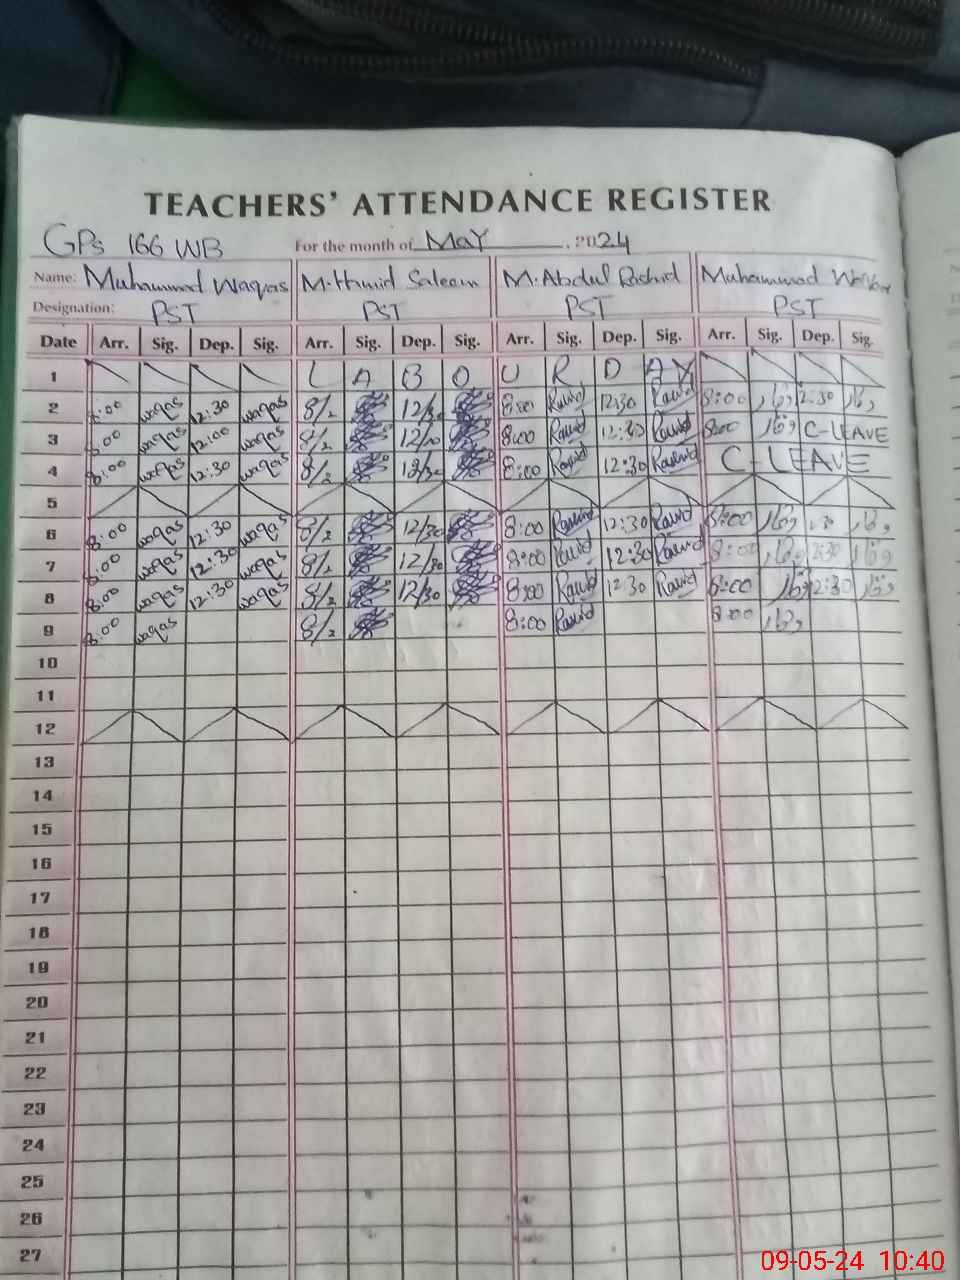 TEACHERS' ATTENDANCE REGISTER
GPs 166 WB For the month of MaY , 2024
Name: Muhammad Waqas M. Hamid Saleem M. Abdul Rashid Muhammad
Designation: PST PST PST PST
Date Arr. Sig. Dep. Sig. Arr. Sig. Dep. Sig. Arr. Sig. Dep. Sig. Arr. Sig. Dep. Sig.
1 L A B O U R D A Y
2 8:00 waqas 12:30 waqas 8/2 12/30 8:00 Rawid 12:30 Rawid 8:00 وقار 2:30 وقار
3 8:00 waqas 12:00 waqas 8/2 8:00 Rawid 12:30 Rawid 8:00 وقار C-LEAVE
4 8:00 waqas 12:30 waqas 8/2 12/30 8:00 Rawid 12:30 Rawid C-LEAVE
5
6 8:00 waqas 12:30 waqas 8/2 12/30 8:00 Rawid 12:30 Rawid 8:00 وقار وقار
7 8:00 waqas 12:30 waqas 8/2 12/30 8:00 Rawid 12:30 Rawid 8:00 وقار 2:30 وقار
8 8:00 waqas 12:30 waqas 8/2 12/30 8:00 Rawid 12:30 Rawid 8:00 وقار 2:30 وقار
9 8:00 waqas 8/2 8:00 Rawid 8:00 وقار
10
11
12
13
14
15
16
17
18
19
20
21
22
23
24
25
26
27
09-05-24 10:40